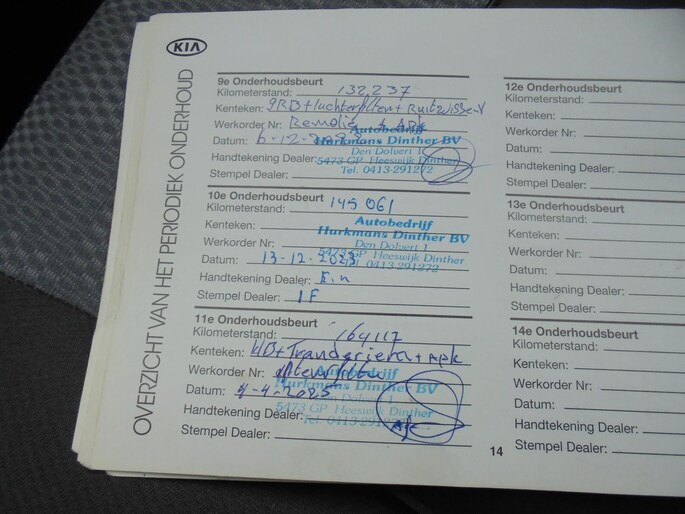 KIA
OVERZICHT VAN HET PERIODIEK ONDERHOUD
9e Onderhoudsbeurt
Kilometerstand: 132237
Kenteken: GRB + luchtfilter + Ruitwisser
Werkorder Nr: + APK
Datum: 6-12-
Handtekening Dealer:
Stempel Dealer:
Autobedrijf
Hurkmans Dinther BV
Den Dolvert 1
5473 GP Heeswijk Dinther
Tel. 0413-291272
10e Onderhoudsbeurt
Kilometerstand: 145061
Kenteken:
Werkorder Nr:
Datum: 13-12-2023
Handtekening Dealer:
Stempel Dealer:
Autobedrijf
Hurkmans Dinther BV
Den Dolvert 1
5473 GP Heeswijk Dinther
Tel. 0413-291272
11e Onderhoudsbeurt
Kilometerstand: 164117
Kenteken: + APK
Werkorder Nr:
Datum: -4-2025
Handtekening Dealer:
Stempel Dealer:
Autobedrijf
Hurkmans Dinther BV
Den Dolvert 1
5473 GP Heeswijk Dinther
Tel. 0413-291272
14
12e Onderhoudsbeurt
Kilometerstand:
Kenteken:
Werkorder Nr:
Datum:
Handtekening Dealer:
Stempel Dealer:
13e Onderhoudsbeurt
Kilometerstand:
Kenteken:
Werkorder Nr:
Datum:
Handtekening Dealer:
Stempel Dealer:
14e Onderhoudsbeurt
Kilometerstand:
Kenteken:
Werkorder Nr:
Datum:
Handtekening Dealer:
Stempel Dealer: